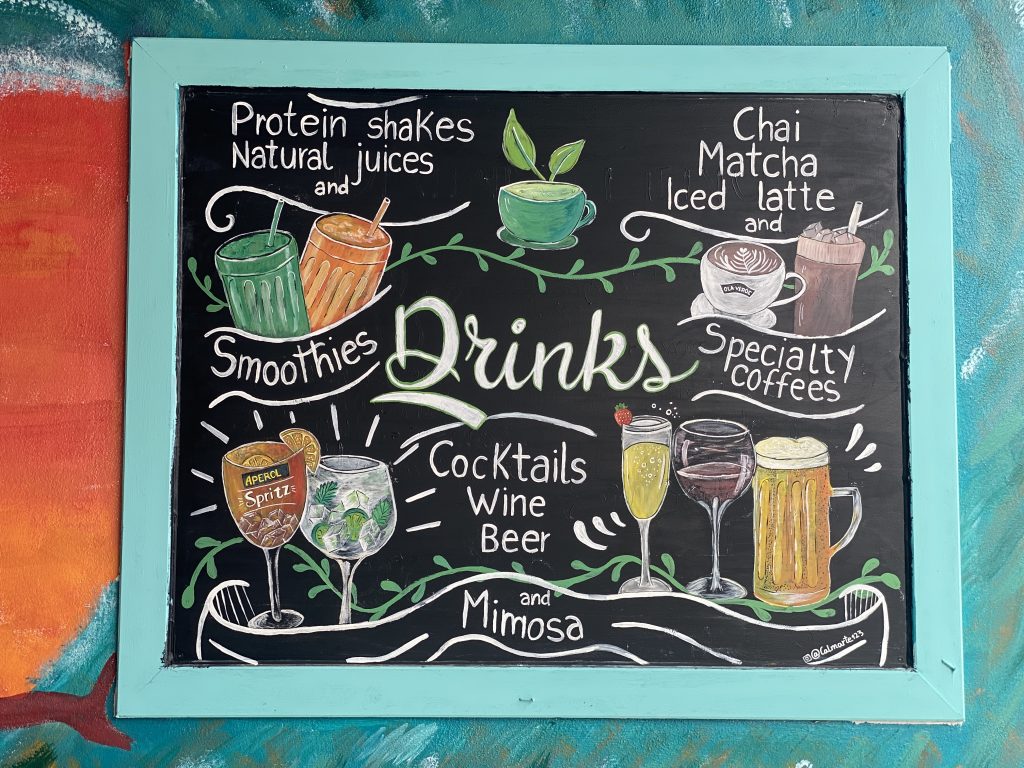 Protein shakes
Natural juices
and
Smoothies
Chai
Matcha
Iced latte
and
OLA VERDE
Specialty
coffees
Drinks
APEROL
Spritz
Cocktails
Wine
Beer
and
Mimosa
@Calmarte123